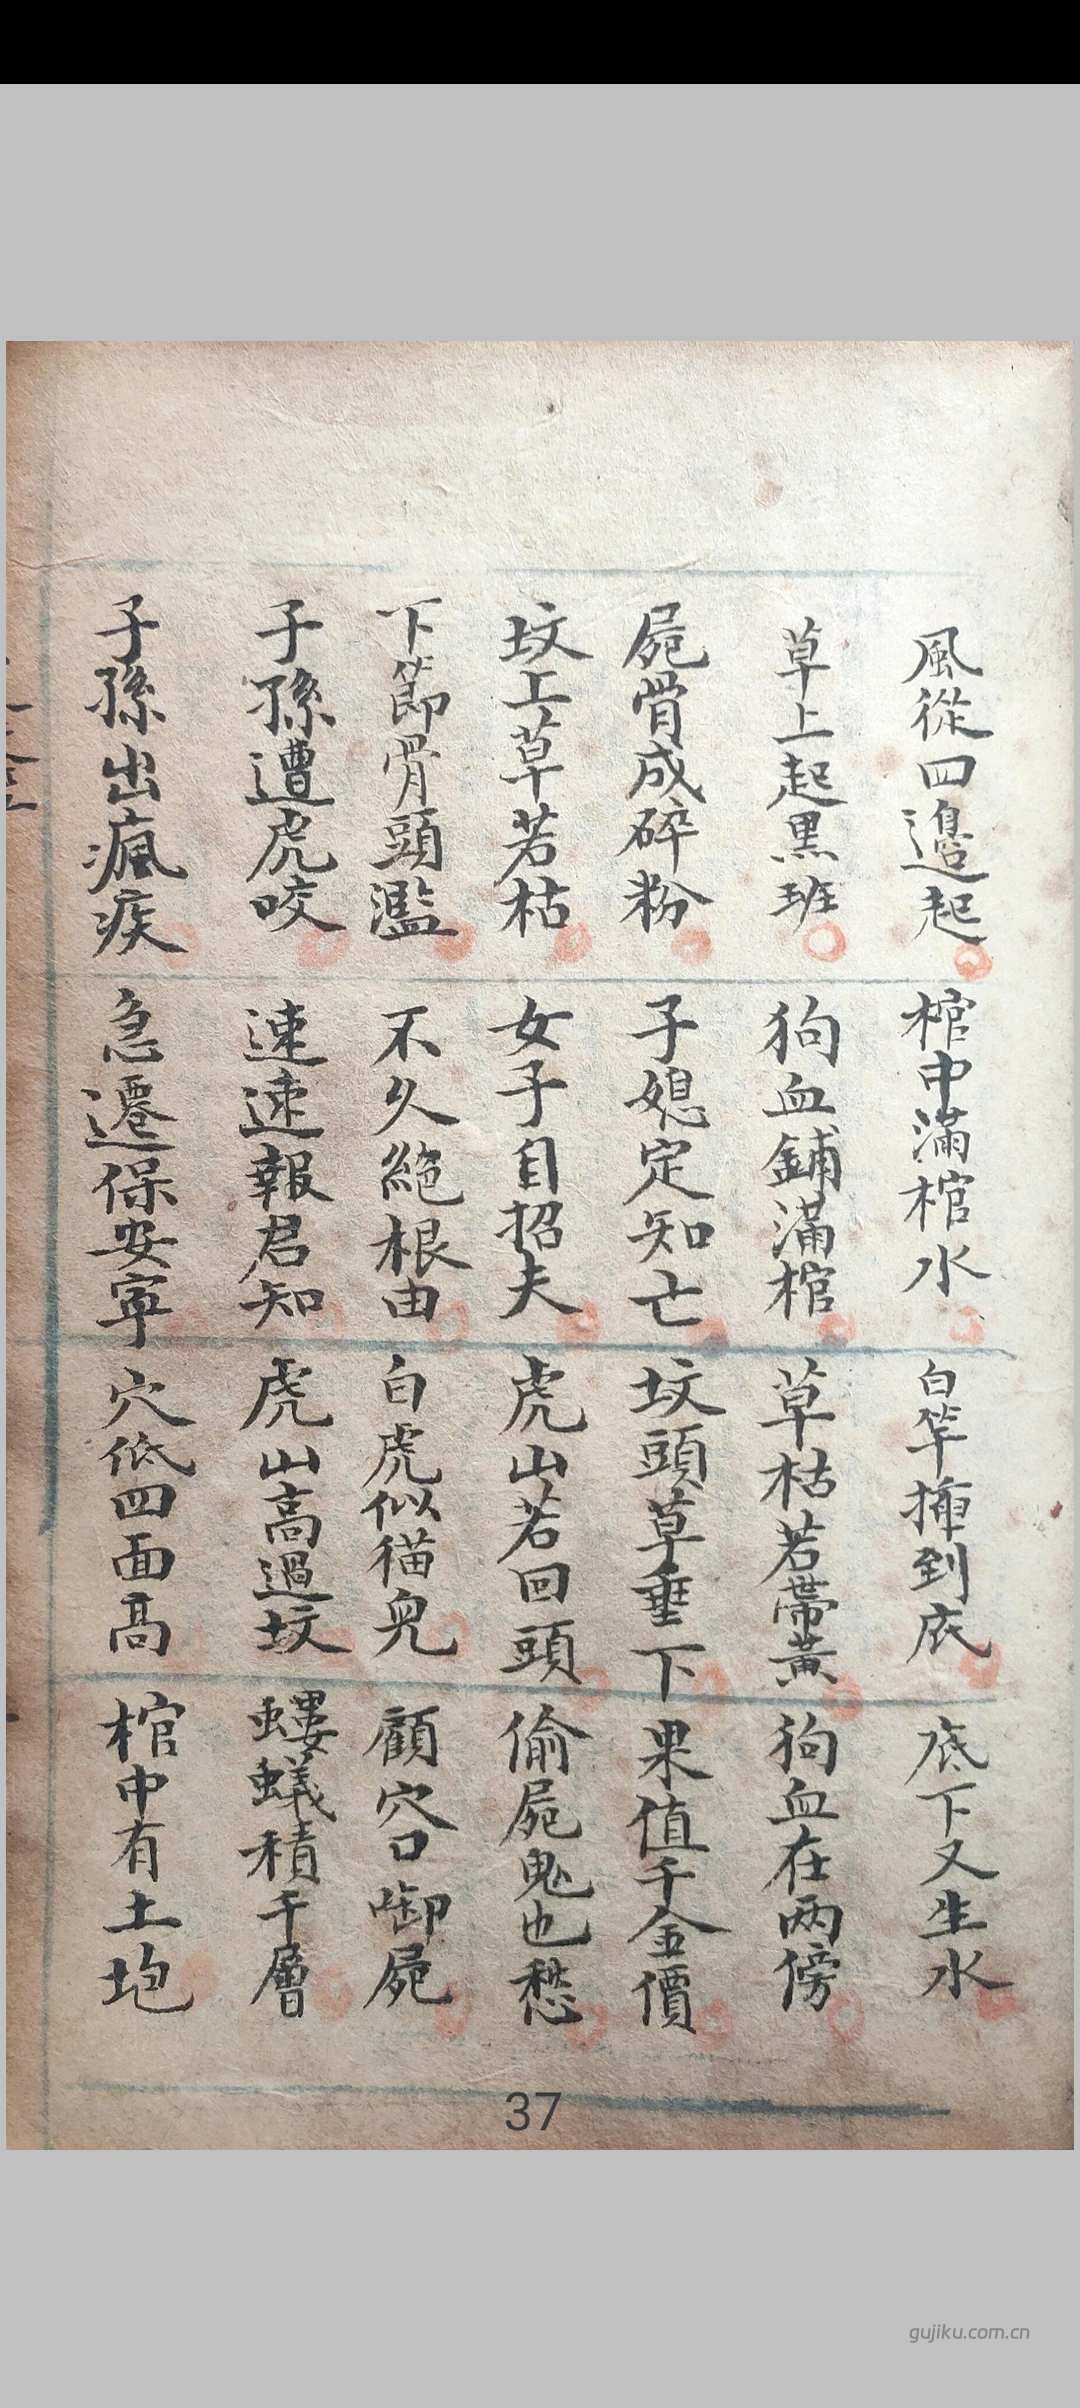 風從四邉起 棺中滿棺水 白竿揷到底 底下又生水
草上起黑班 狗血鋪滿棺 草枯若帶黃 狗血在两傍
屍骨成碎粉 子媳定知亡 坟頭草垂下 果值千金價
坟上草若枯 女子自招夫 虎山若回頭 偷屍鬼也愁
下節骨頭濫 不久絕根由 白虎似猫兒 顧穴口啣屍
子孫遭虎咬 速速報君知 虎山高過坟 螻蟻積千層
子孫出瘋疾 急遷保安寧 穴低四面高 棺中有土垉
37
gujiku.com.cn